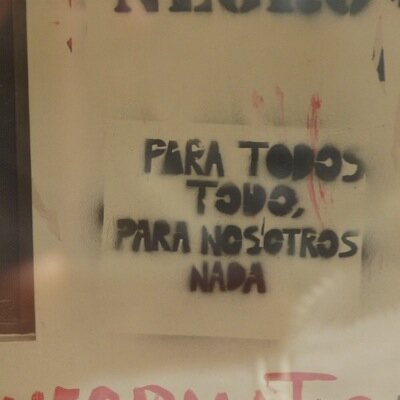 NEGRO
PARA TODOS
TODO,
PARA NOSOTROS
NADA